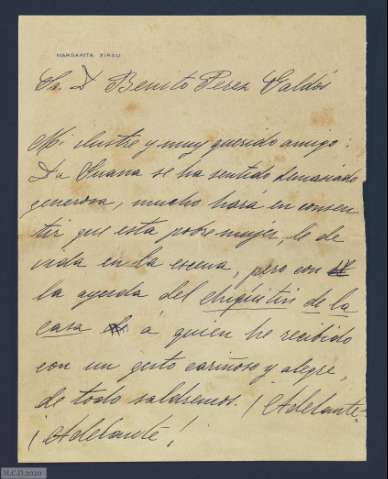 MARGARITA XIRGU
Sr. D. Benito Perez Galdós
Mi ilustre y muy querido amigo:
Da Juana se ha sentido demasiado
generosa, mucho hará en consen-
tir que esta pobre mujer, le de
vida en la escena, pero con
la ayuda del chiquitin de la
casa á quien he recibido
con un gesto cariñoso y alegre,
de todo saldremos. ¡Adelante
¡Adelante!
N.C.D. 2020